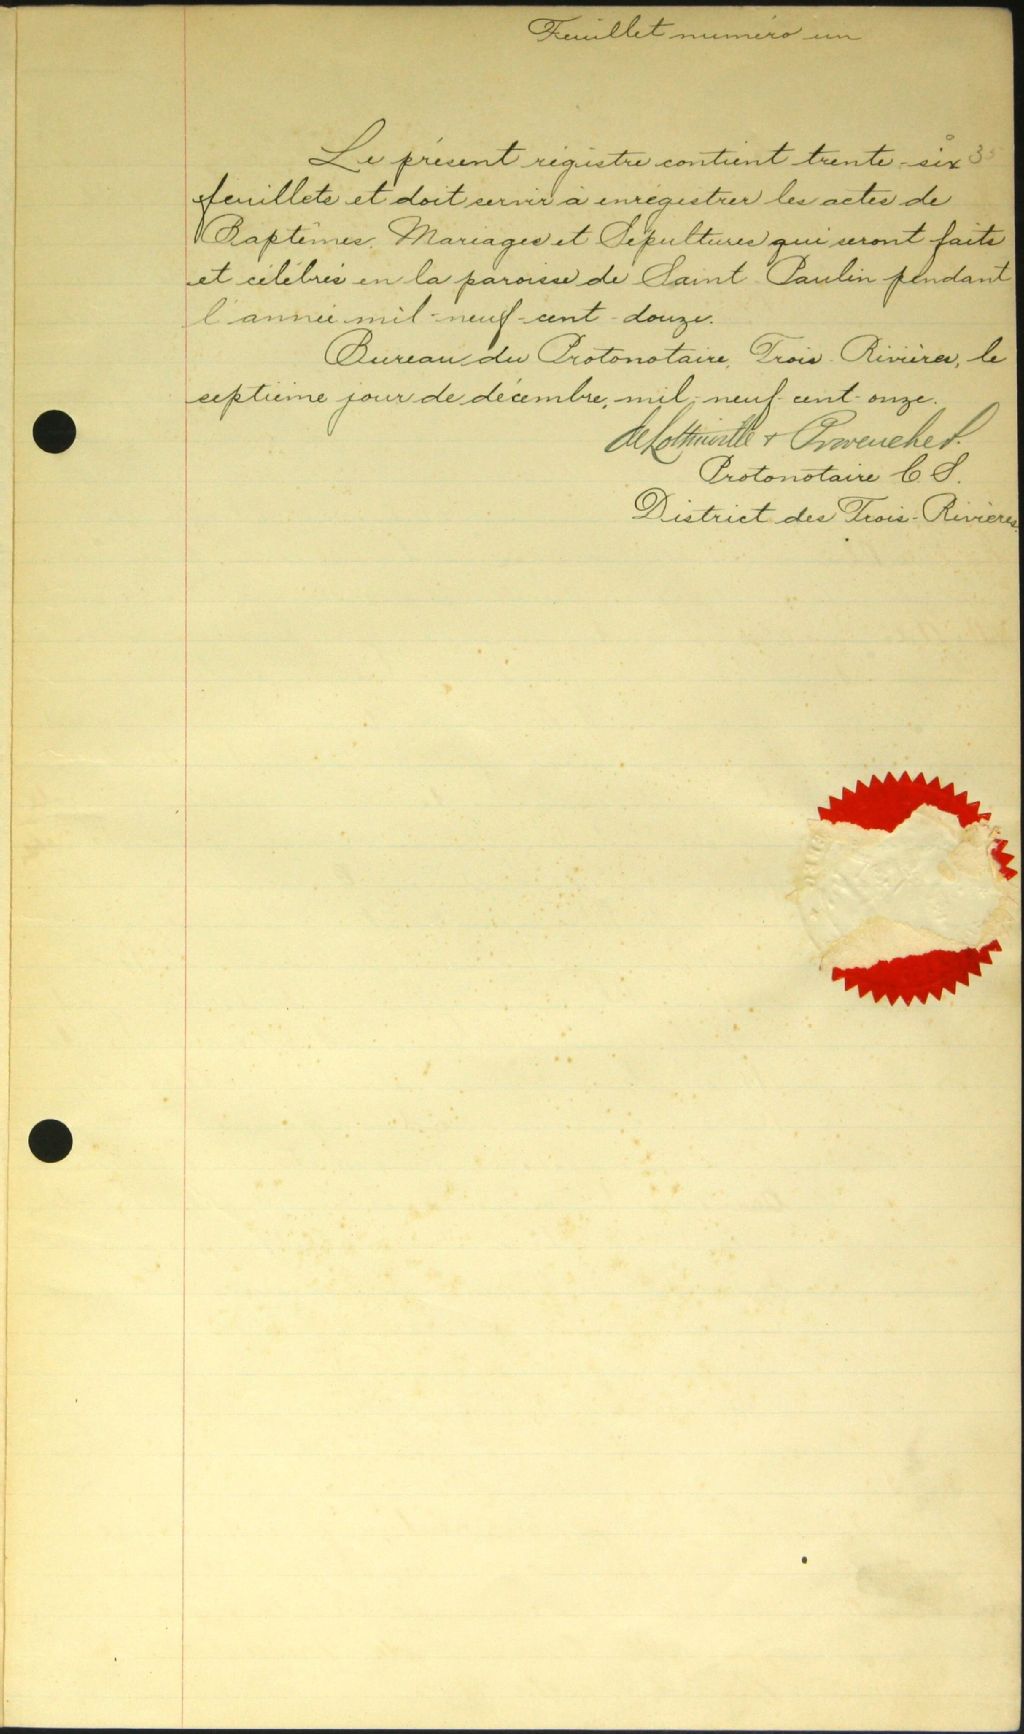 Feuillet numéro un
Le présent régistre contient trente-six 35
feuillets et doit servir à enrégistrer les actes de
Baptêmes, Mariages et Sépultures qui seront faits
et célébrés en la paroisse de Saint-Paulin pendant
l'année mil-neuf-cent-douze.
Bureau du Protonotaire, Trois-Rivières, le
septième jour de décembre, mil-neuf-cent-onze.
de Lottinville & Provencher.
Protonotaire C. S.
District des Trois-Rivières.